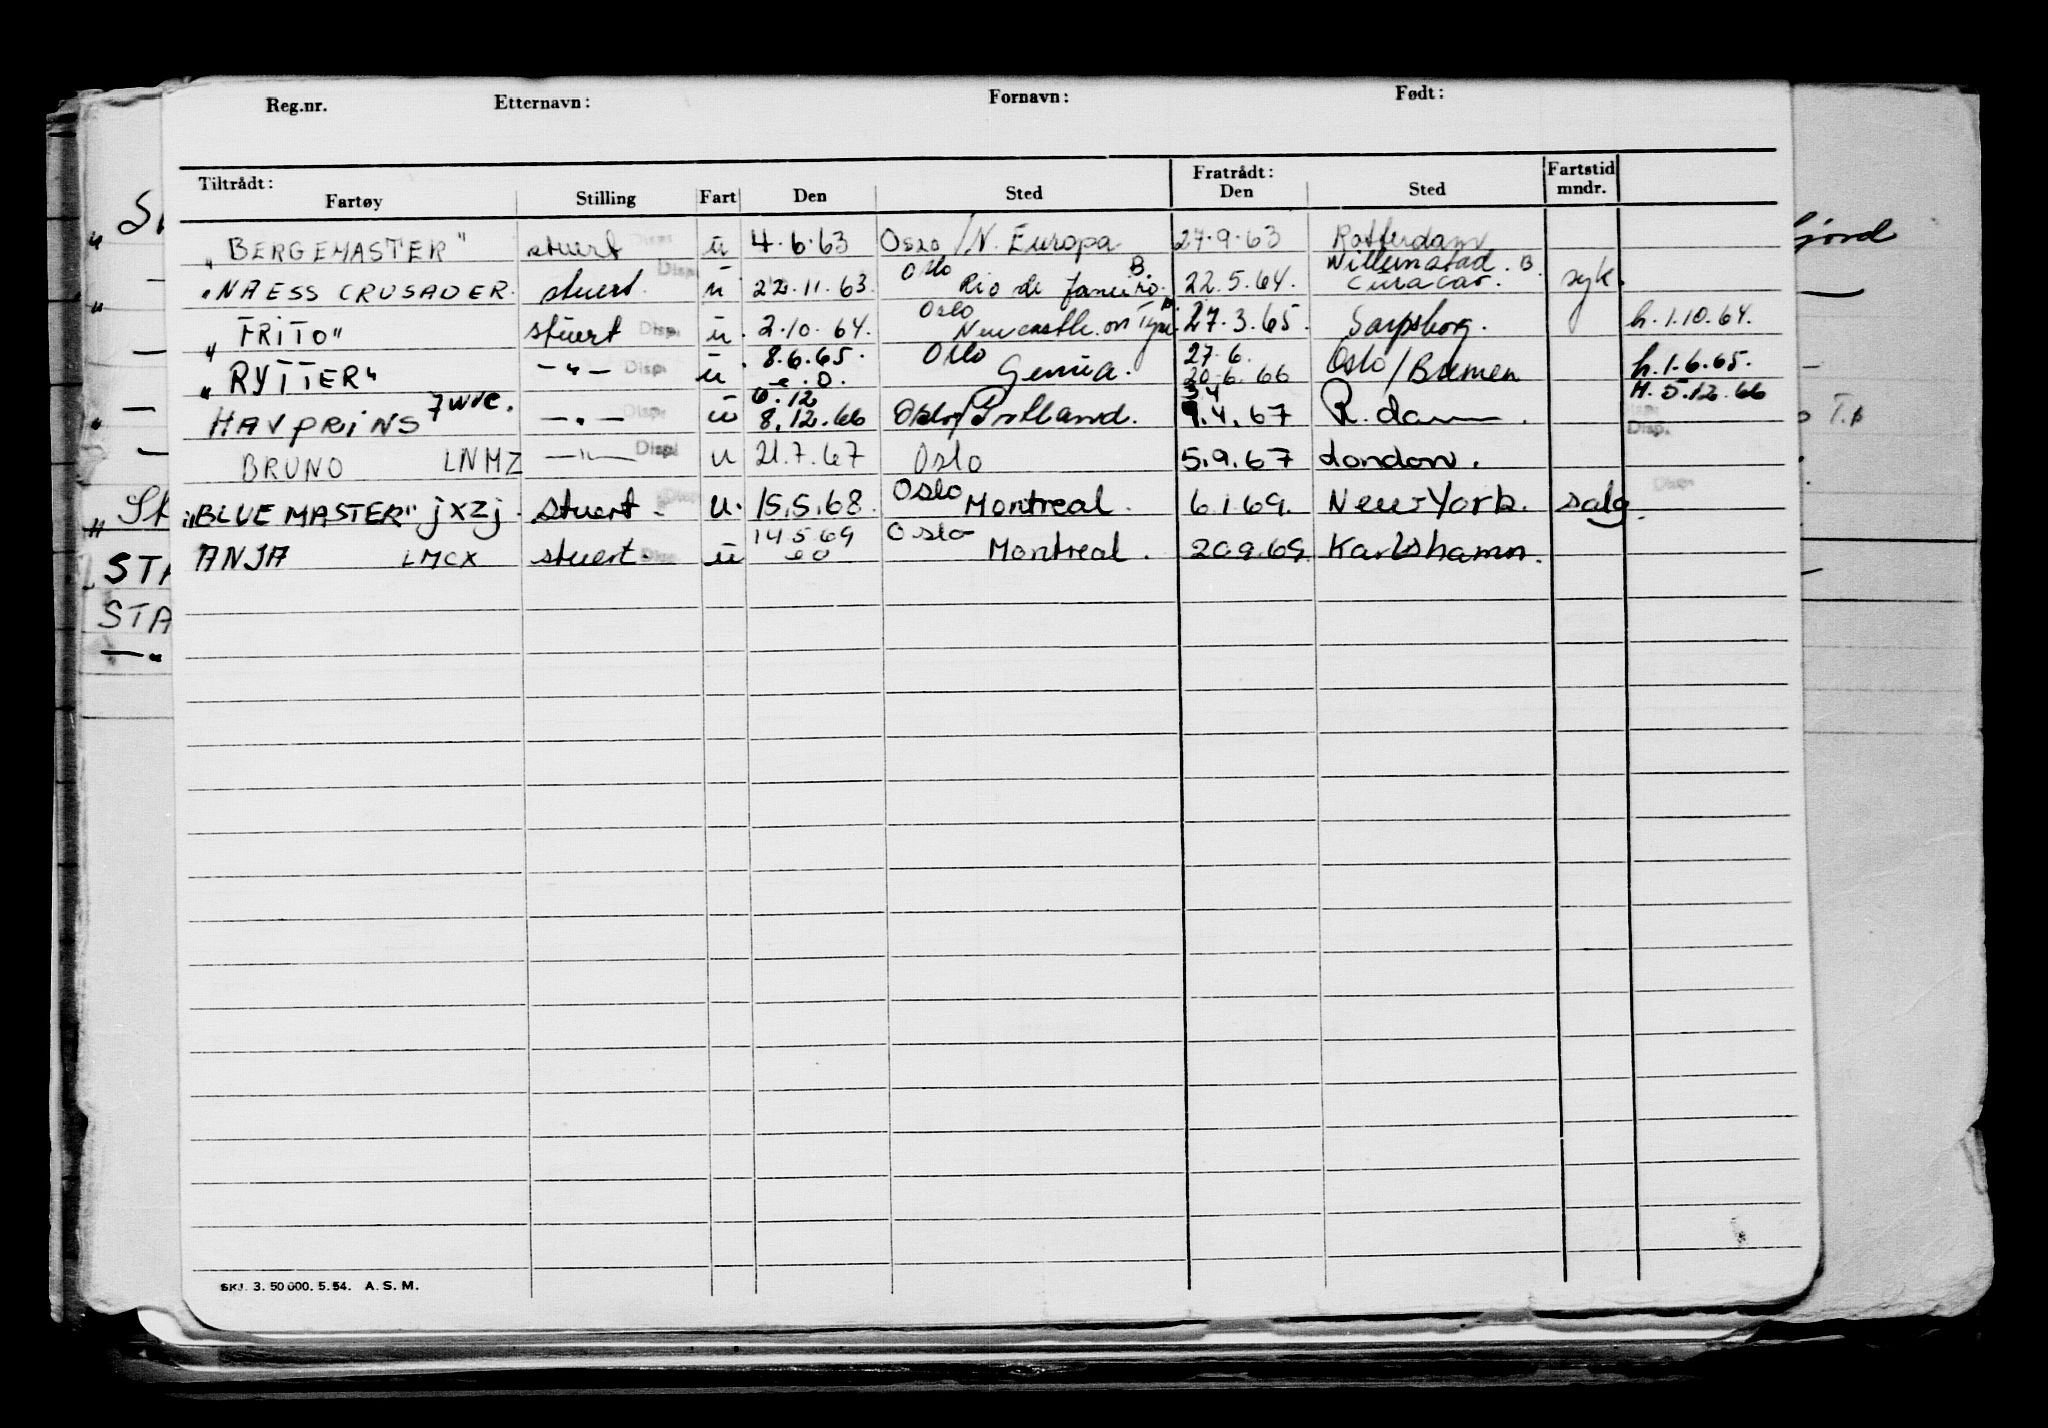 Reg.nr. Etternavn: Fornavn: Født:
Tiltrådt: Fratrådt: Fartstid
Fartøy Stilling Fart Den Sted Den Sted mndr.
"BERGEMASTER" stuert Disp. u 4.6.63 Oslo/N. Europa 27.9.63 Rotterdam
"NAESS CRUSADER. stuert. Disp. u 22.11.63. Oslo Rio de Janeiro. B. 22.5.64. Willemstad. B. Curacao. syk.
"FRITO" stuert Disp. u. 2.10.64. Oslo Newcastle on Tyne. 27.3.65. Sarpsborg. h.1.10.64.
"RYTTER" —"— Disp. u 8.6.65. Oslo Genua. 27.6. 20.6.66 Oslo/Bremen h.1.6.65.
HAVPRINS —"— Disp. u 6.12 8.12.66 Oslo/Portland. 9.4.67 R.dam. H.5.12.66 Disp.
BRUNO LNMZ —"— Disp. u 21.7.67 Oslo 5.9.67 London.
"BLUE MASTER" jxzj. stuert. Disp. u. 15.5.68. Oslo Montreal. 6.1.69. New-York. salg. Disp.
ANJA LMCX stuert. Disp. u 14.5.69 Oslo Montreal. 20.9.69. Karlshamn.
STA
STA
—"
fjord
SKJ. 3. 50 000. 5. 54. A. S. M.